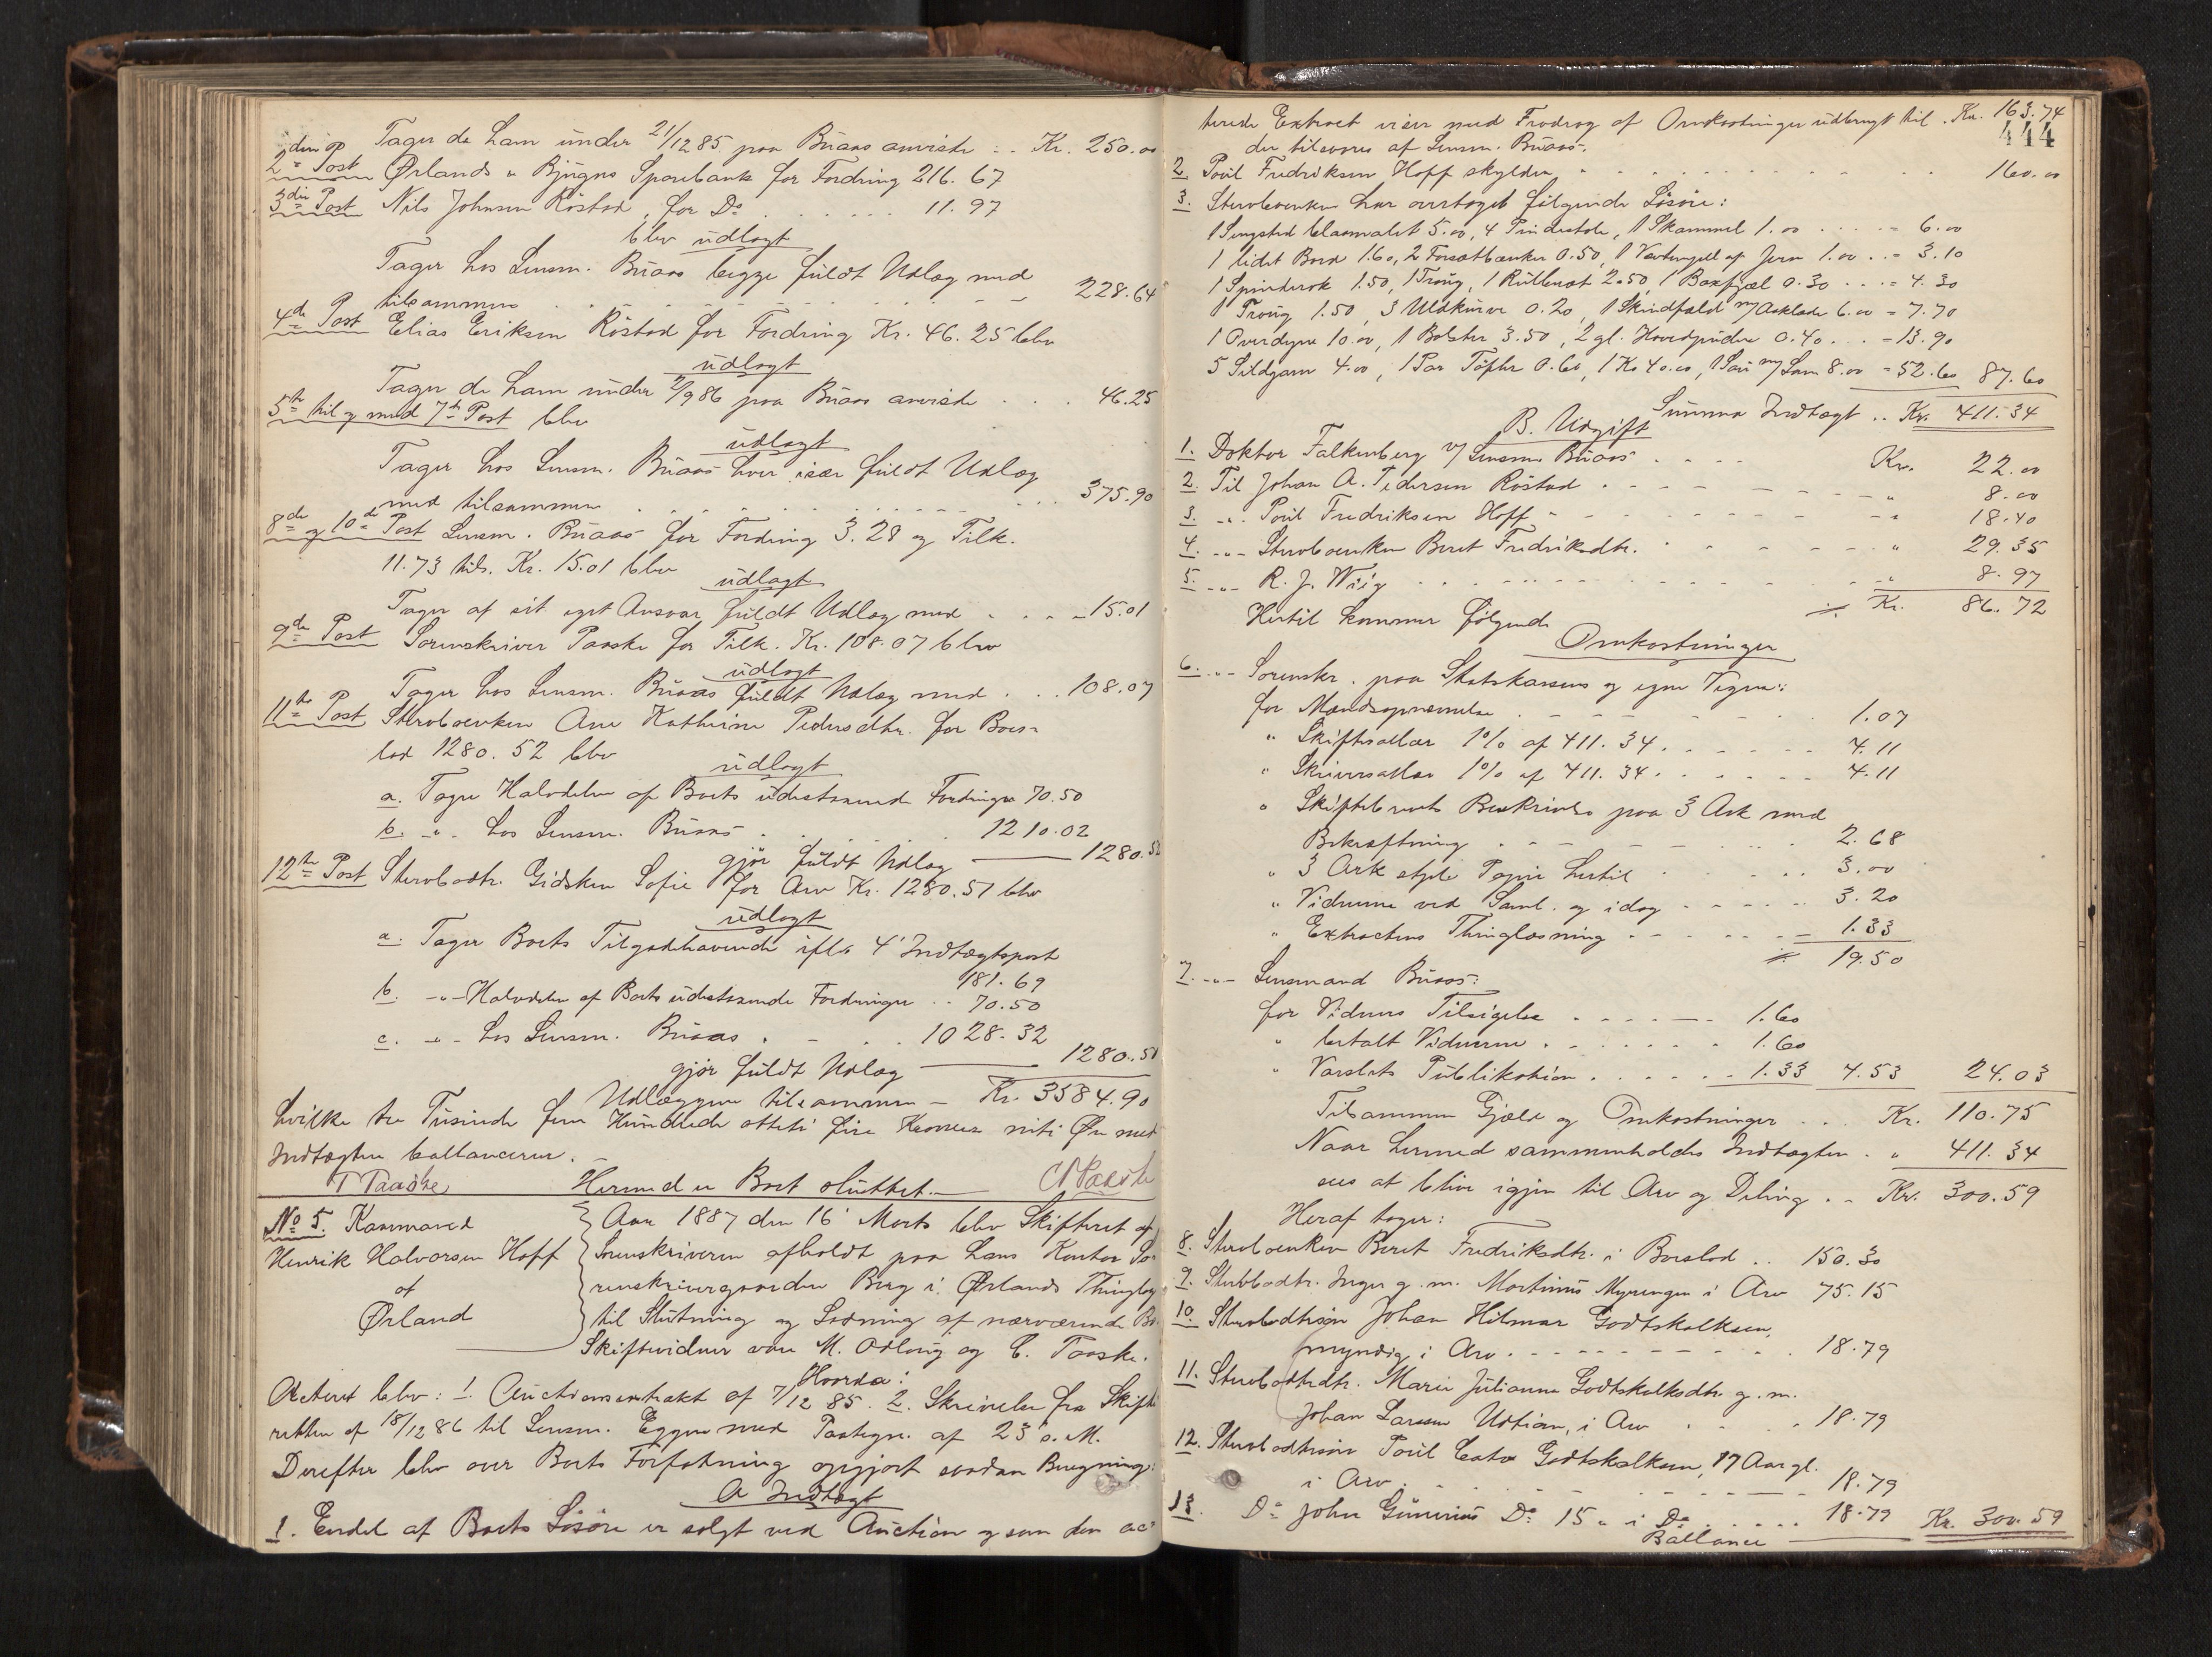 Tager de ham under 21/12 85 paa Buaas anviste .. Kr. 250.00
2den Post Ørlands & Bjugns Sparebank for Fordring 216.67
3die Post Nils Johnsen Röstad, for Do . . . . . . . 11.97
blev udlagt
Tager hos Lensm. Buaas begge fuldt Udlæg med
tilsammen . . . . . . . . . . 228.64
4de Post Elias Eriksen Röstad for Fordring Kr. 46.25 blev
udlagt
Tager de ham under 2/9 86 paa Buaas anviste . . . 46.25
5te til og med 7de Post blev
udlagt
Tager hos Lensm. Buaas hver især fuldt Udlæg
med tilsammen . . . . . . . . . . 375.90
8de og 10de Post Lensm. Buaas for Fordring 3.28 og Tilk.
11.73 tils. Kr. 15.01 blev
udlagt
Tager af sit eget Ansvar fuldt Udlæg med . . . . 15.01
9de Post Sorenskriver Paaske for Tilk. Kr. 108.07 blev
udlagt
Tager hos Lensm. Buaas fuldt Udlæg med . . . 108.07
11te Post Stervboenken Ane Kathrine Pedersdtr. for Boes-
lod 1280.52 blev
udlagt
a. Tager Halvdelen af Boets udestaaende Fordringer 70.50
b. -"- hos Lensm. Buaas . . . . . 1210.02
gjør fuldt Udlæg — 1280.52
12te Post Stervbodtr. Gidsken Sofie for Arv Kr. 1280.51 blev
udlagt
a. Tager Boets Tilgodehavende iflg 4' Indtægtspost
181.69
b. -"- Halvdelen af Boets udestaaende Fordringer . . 70.50
c. -"- hos Lensm. Buaas . . . . 1028.32
gjør fuldt Udlæg — 1280.51
Udlæggene tilsammen — Kr. 3584.90
hvilke tre Tusinde fem Hundrede otteti fire Kroner niti Øre med
Indtægten ballancerer.
Hermed er Boet sluttet. —
T Paaske C Paaske
No 5. Kaarmand
Henrik Halvorsen Hoff
af
Ørland
Aar 1887 den 16' Marts blev Skifteret af
Sorenskriveren afholdt paa hans Kontor So-
renskrivergaarden Berg i Ørlands Thinglag
til Slutning og Lodning af nærværende Bo
Skiftevidner vare M. Odlaug og C. Paaske.
Hvorda:
Acteret blev: 1. Auctionsextrakt af 7/12 85. 2. Skrivelse fra Skifte-
retten af 18/12 86 til Lensm. Eggen med Paategn. af 23' s. M.
Derefter blev over Boets Forfatning opgjort saadan Beregning:
A Indtægt
1. Endel af Boets Løsöre er solgt ved Auction og som den ac-
444
terede Extract viser med Fradrag af Omkostninger udbragt til . Kr. 163.74
der tilsvares af Lensm. Buaas.
2. Poul Fredriksen Hoff skylder . . . . . . . . . . 160.00
3. Stervboenken har overtaget fölgende Løsöre:
1 Sengsted blaamalet 5.00, 4 Pindestole, 1 Skammel 1.00 . . . . = 6.00
1 lidet Bord 1.60, 2 Forsætbænker 0.50, 1 Vævtengsel af Jern 1.00 . . = 3.10
1 Spinderok 1.50, 1 Traug, 1 Rullenat 2.50, 1 Baxfjæl 0.30 . . . = 4.30
1 Traug 1.50, 3 Uldkurve 0.20, 1 Skindfæld m/ Aaklæde 6.00 = 7.70
1 Overdyne 10.00, 1 Bolster 3.50, 2 gl. Hovedpuder 0.40 . . . = 13.90
5 Sildgarn 4.00, 1 Par Töfler 0.60, 1 Ko 40.00, 1 Sau m/ Lam 8.00 = 52.60 87.60
Summa Indtægt .. Kr. 411.34
B. Udgift
1. Doktor Falkenberg v/ Lensm. Buaas . . . . Kr. 22.00
2. Til Johan A. Pedersen Röstad . . . . . . . . " 8.00
3. -"- Poul Fredriksen Hoff . . . . . . . . " 18.40
4. -"- Stervboenken Beret Fredriksdtr. . . . . . " 29.35
5. -"- R. J. Wiig . . . . . . . . . . " 8.97
Kr. 86.72
Hertil kommer følgende
Omkostninger
6. -"- Sorenskr. paa Statskassens og egne Vegne:
for Mandsopnævnelse . . . . . . . 1.07
" Skiftesallær 1% af 411.34 . . . . . . 4.11
" Skriversallær 1% af 411.34 . . . . . . 4.11
" Skiftebrevets Beskrivelse paa 3 Ark med
Bekræftning . . . . . . . . 2.68
" 3 Ark stplt Papir hertil . . . . . . 3.00
" Vidnerne ved Saml. og idag . . . . . 3.20
" Extractens Thinglæsning . . . . . . 1.33
19.50
7. -"- Lensmand Buaas:
for Vidners Tilsigelse . . . . . . 1.60
" betalt Vidnerne . . . . . . . 1.60
" Varslets Publikation . . . . . . 1.33 4.53 24.03
Tilsammen Gjæld og Omkostninger . . . Kr. 110.75
Naar hermed sammenholdes Indtægten . " 411.34
sees at blive igjen til Arv og Deling . . Kr. 300.59
Heraf tager:
8. Stervboenken Beret Fredriksdtr. i Boeslod .. 150.30
9. Stervbodtr. Inger g. m. Martinus Myrengen i Arv 75.15
10. Stervbodtrsön Johan Hilmar Godtskalksen,
myndig, i Arv . . . . . . . . . . 18.79
11. Stervbodtrdtr. Marie Julianne Godtskalksdtr. g. m.
Johan Larssen Udtian, i Arv . . . . 18.79
12. Stervbodtrsön Poul Godtskalksen, 17 Aar gl.
i Arv . . . . . . . . . . . . 18.79
13. Do John Gunerius Do 15 " i Do . . . . . 18.79 Kr. 300.59
Ballance